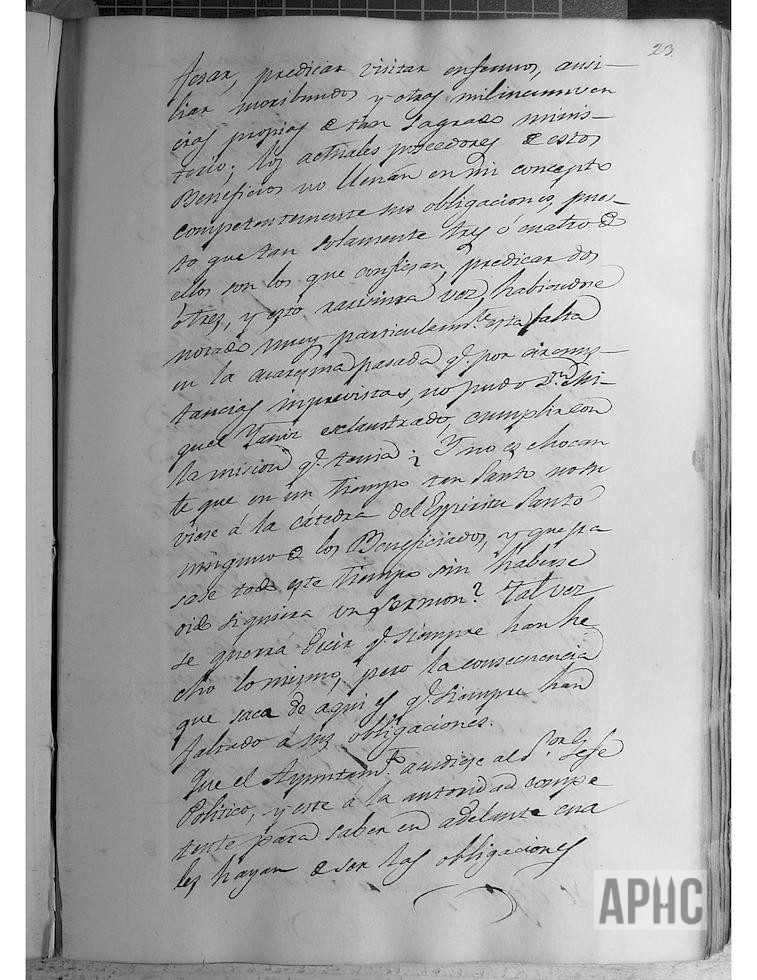 23.
fesar, predicar visitar enfermos, ausi-
liar moribundos y otras mil incumven
cias propias de tan Sagrado minis-
terio; los actuales poseedores de estos
Beneficios no llenan en mi concepto
competentemente sus obligaciones, pues-
to que tan solamente tres ó cuatro de
ellos son los que confiesan, predicar dos
ó tres, y esto rarisima vez, habiendose
notado muy particularmte. esta falta
en la cuaresma pasada q. por circuns-
tancias imprevistas, no pudo Dn. Mi-
guel exclaustrado, cumplir con
la mision q. tenia: ¿Y no es chocan
te que en un tiempo tan Santo no su
viese á la cátedra del Espiritu Santo
ninguno de los Beneficiados, y que pa
sase todo este tiempo sin haberse
oido siquiera un Sermon? Tal vez
se querrá decir q. siempre han he
cho lo mismo, pero la consecuencia
que saca de aqui es q. siempre han
faltado á sus obligaciones.
Que el Ayuntamto. acudiese al Sor. Gefe
Politico, y este á la autoridad compe
tente para saber en adelante cua
les hayan de ser las obligaciones
APHC